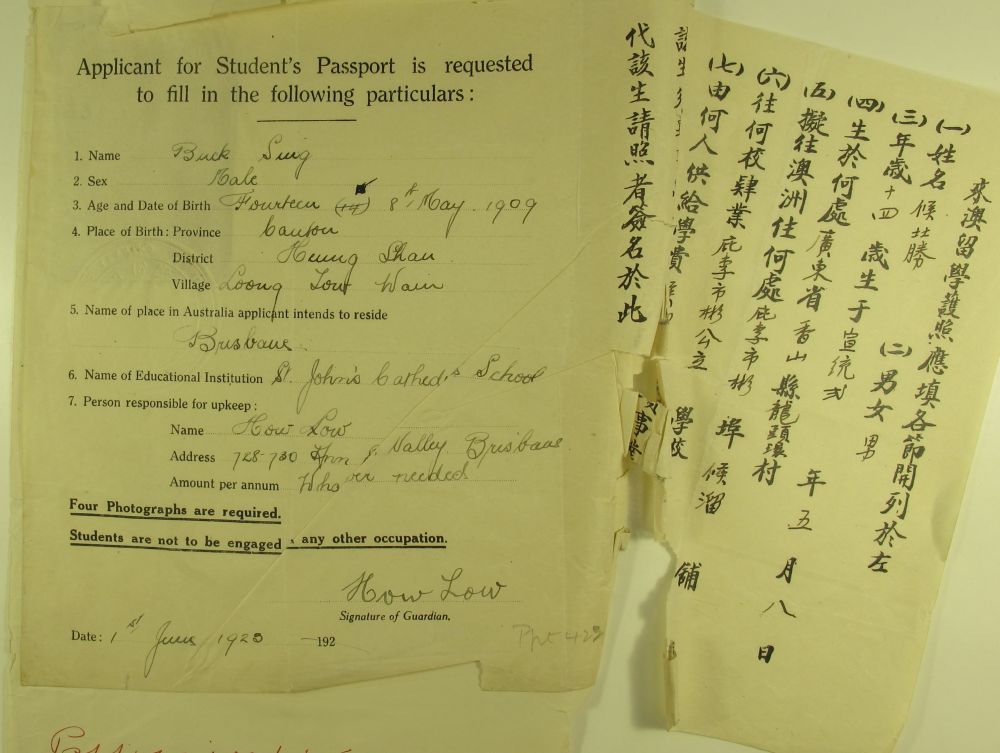 Applicant for Student's Passport is requested
to fill in the following particulars :
1. Name Buck Sing
2. Sex Male
3. Age and Date of Birth Fourteen (14) 8th May 1909
4. Place of Birth : Province Canton
District Heung Shan
Village Loong Tow Wain
5. Name of place in Australia applicant intends to reside
Brisbane
6. Name of Educational Institution St. John's Cathed's School
7. Person responsible for upkeep :
Name How Low
Address 728-730 Valley Brisbane
Amount per annum needed
Four Photographs are required.
Students are not to be engaged any other occupation.
How Low
Signature of Guardian.
Date: 1st June 1923 192
Ppt 422
來澳留學護照應填各節開列於左
(一)姓名 候北勝 (二)男女 男
(三)年歲 十四 歲生于 宣統 年 五 月 八 日
(四)生於何處 廣東省 香山 縣 龍頭環 村
(五)擬往澳洲住何處 庇李市彬 埠
(六)往何校肄業 庇李市彬公立 學校
(七)由何人供給學費 候溜 舖
代該生請照者簽名於此